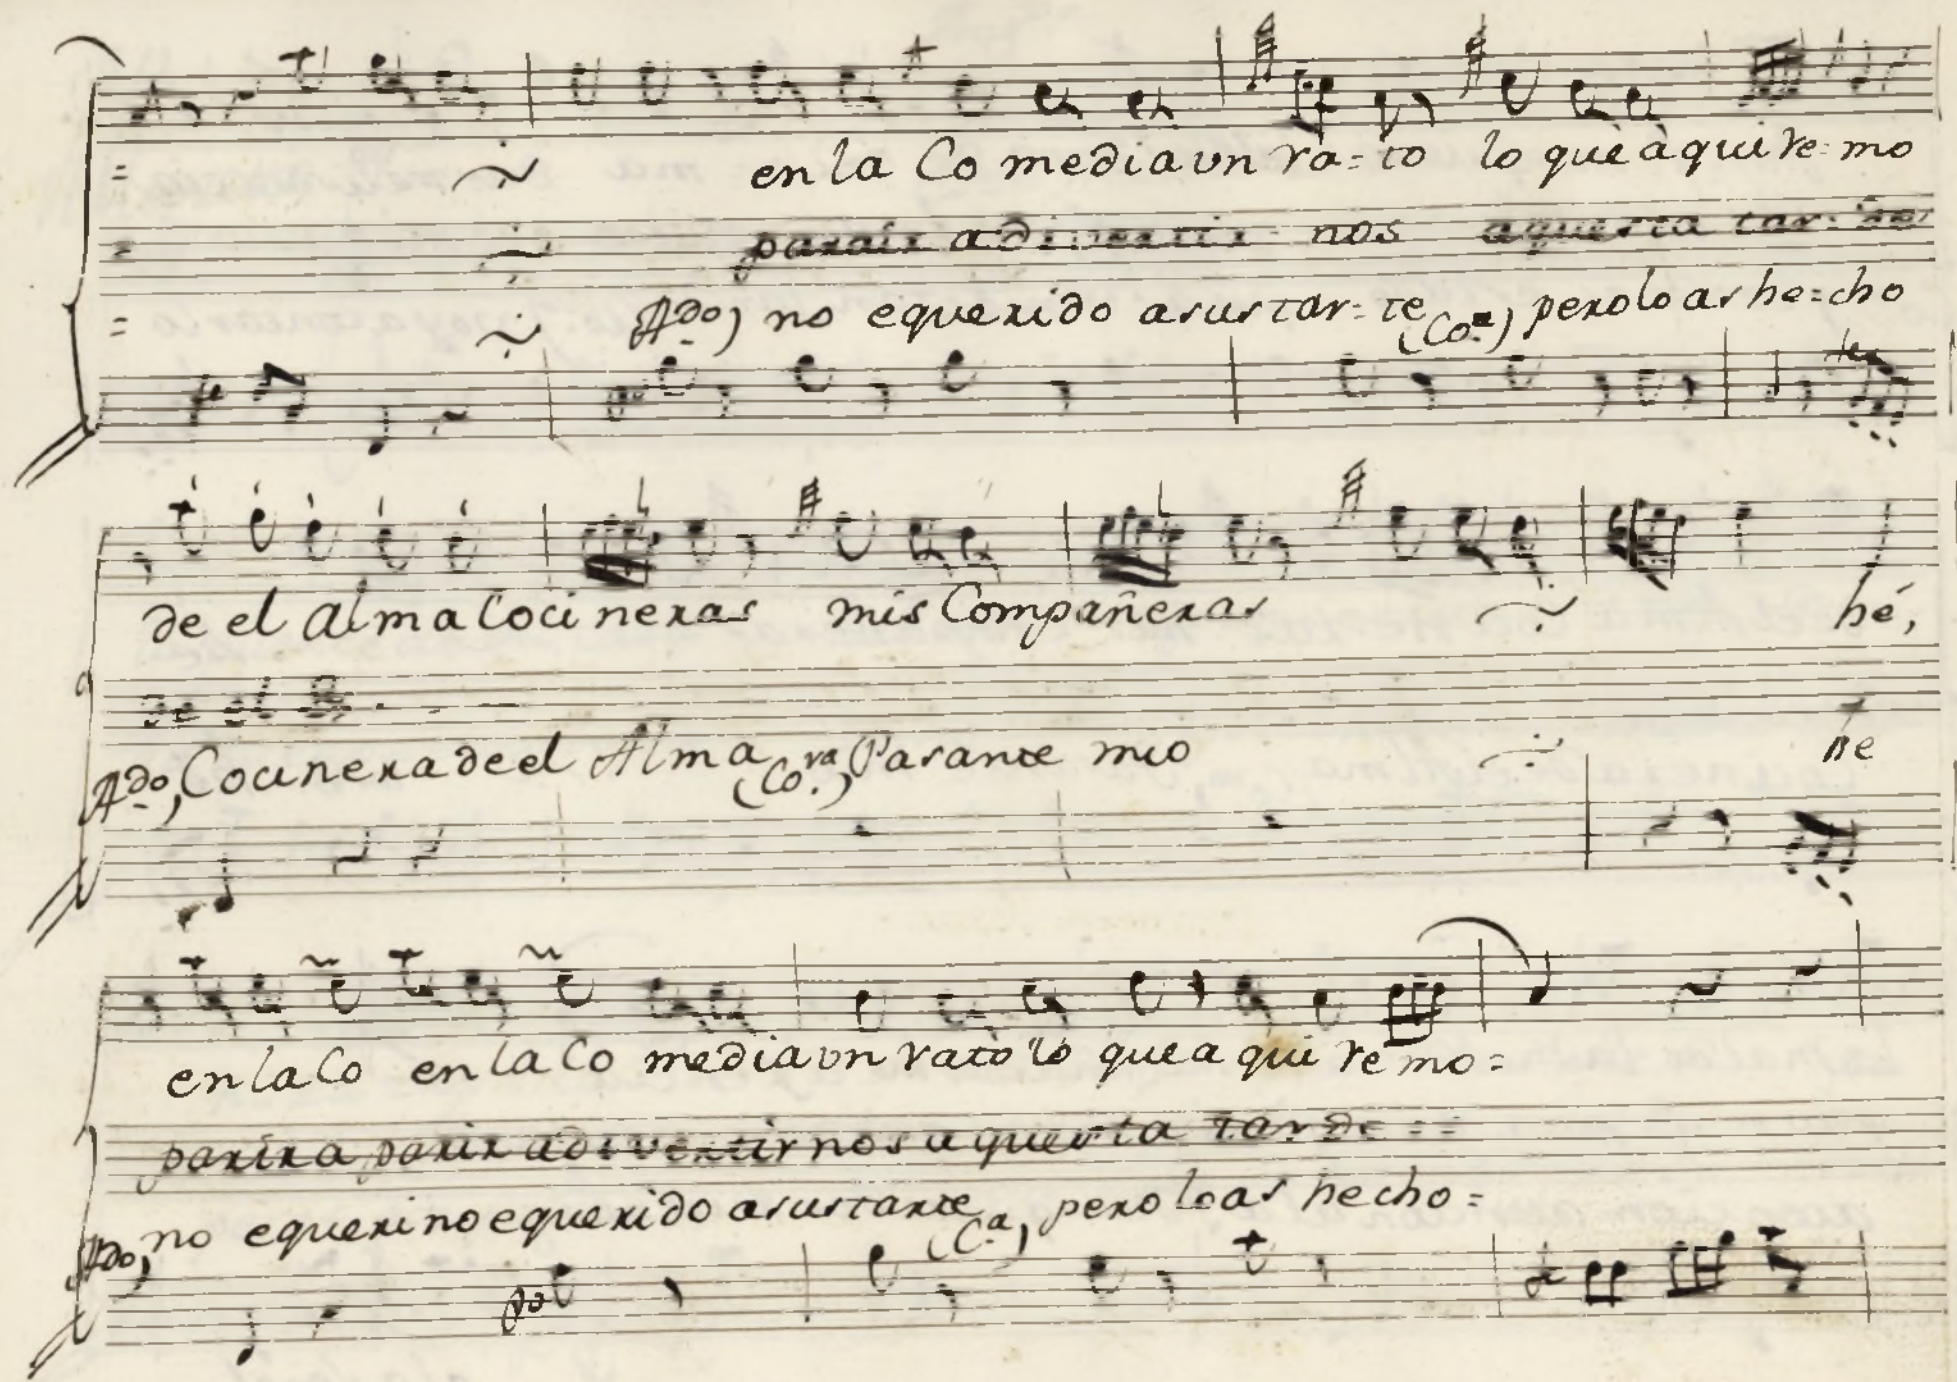 en la Co media un ra=to lo que àqui re=mo
parair adivertir nos aquesta tar=de
Ado) no equerido asustar=te (Coª.) pero lo as he=cho
de el Alma Cocineras mis Compañeras hé,
de el A
Ado, Cocinera de el Alma (Co.ra) Pasante mio he
en la Co en la Co media un rato lo que a qui re mo=
parira parir adivertirnos aquesta tarde ==
Ado, no equerino equerido asustarte (Cª, pero lo as hecho=
po